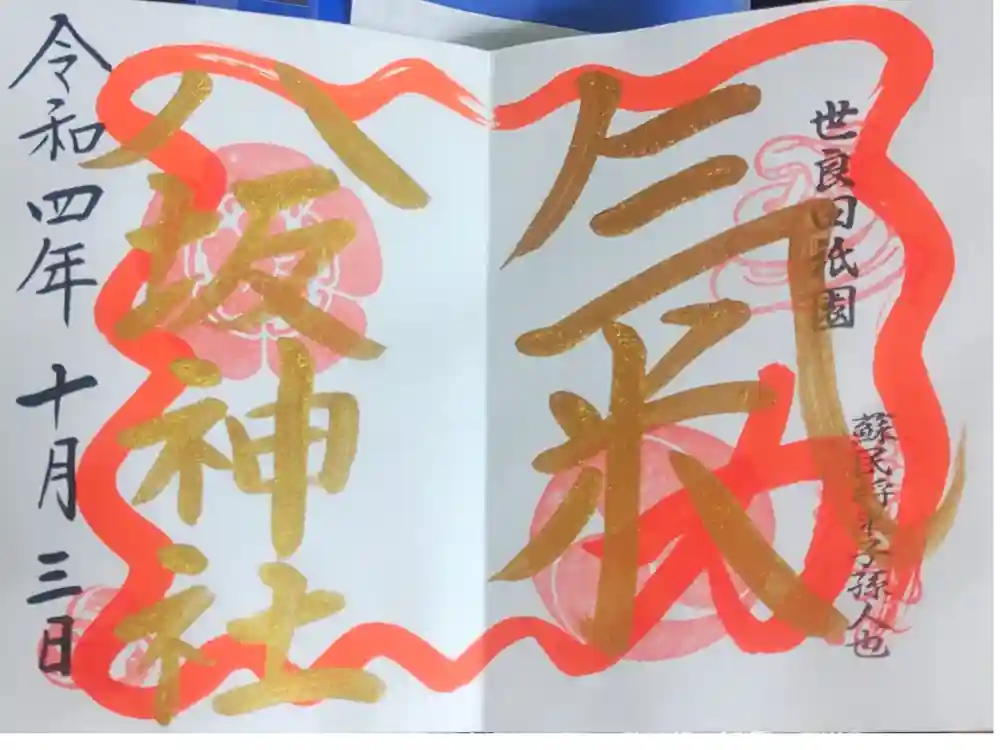 世良田祇園
蘇民将来子孫人也
氣
八坂神社
令和四年 十月三日